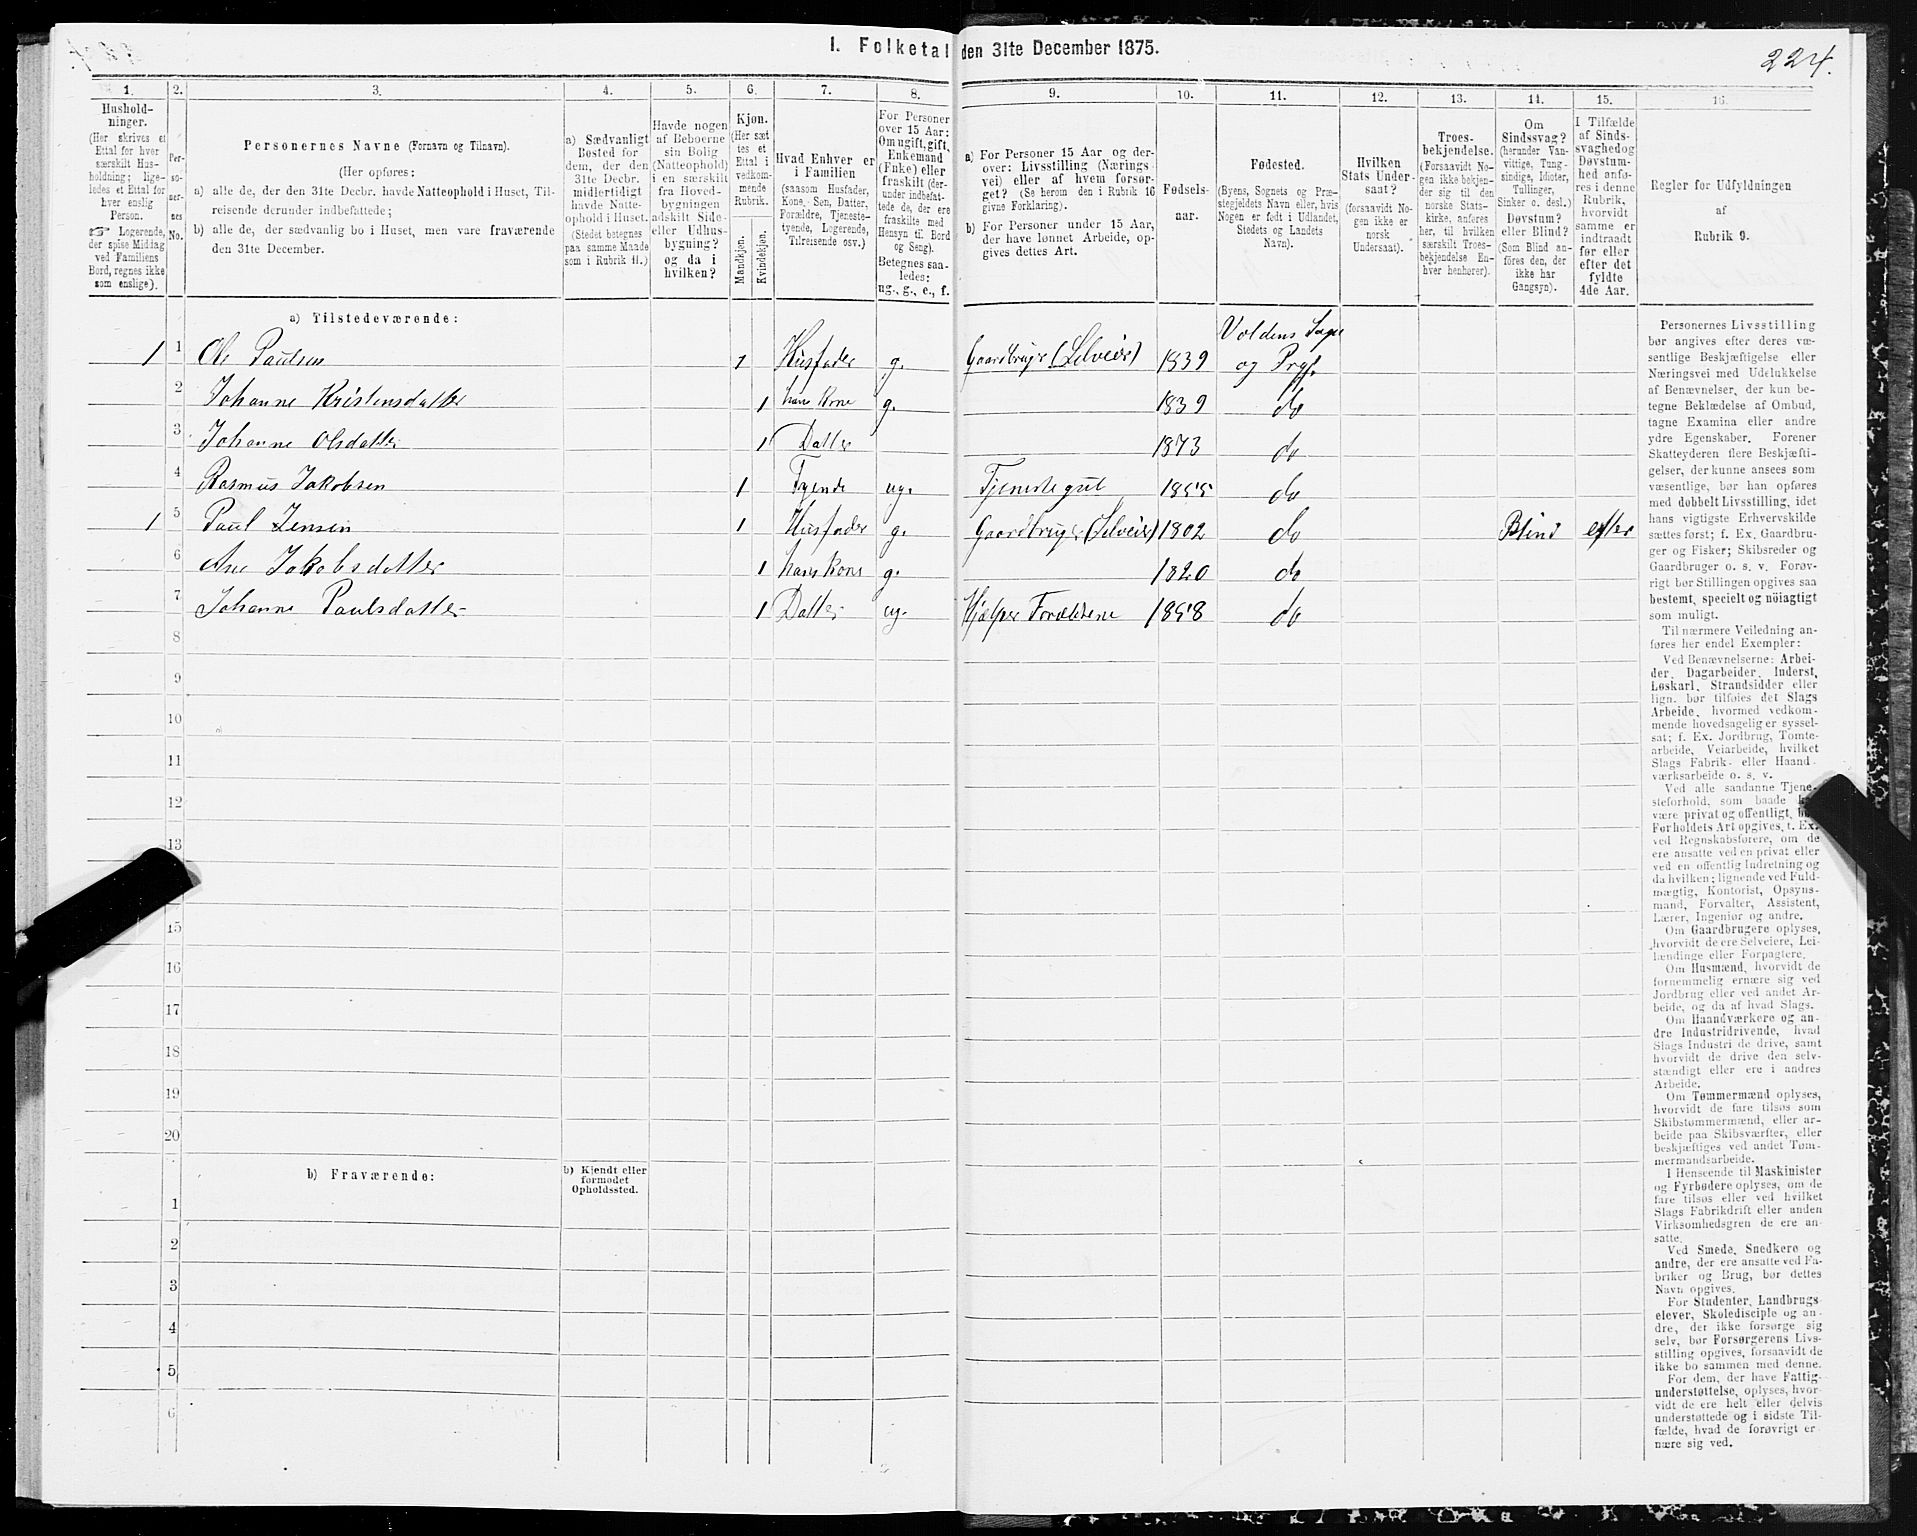 I. Folketal den 31te December 1875.
224.
1. 2. 3. 4. 5. 6. 7. 8. 9. 10. 11. 12. 13. 14. 15. 16.
Hushold-
ninger.
(Her skrives et
Ettal for hver
særskilt Hus-
holdning; lige-
ledes et Ettal for
hver enslig
Person.
☞ Logerende,
der spise Middag
ved Familiens
Bord, regnes ikke
som enslige).
Per-
so-
ner-
nes
No.
Personernes Navne (Fornavn og Tilnavn).
(Her opføres:
a) alle de, der den 31te Decbr. havde Natteophold i Huset, Til-
reisende derunder indbefattede;
b) alle de, der sædvanlig bo i Huset, men vare fraværende
den 31te December.
a) Sædvanligt
Bosted for
dem, der den
31te Decbr.
midlertidigt
havde Natte-
ophold i Huset.
(Stedet betegnes
paa samme Maade
som i Rubrik 11.)
Havde nogen
af Beboerne
sin Bolig
(Natteophold)
i en særskilt
fra Hoved-
bygningen
adskilt Side-
eller Udhus-
bygning?
og da i
hvilken?
Kjøn.
(Her sæt-
tes et
Ettal i
vedkom-
mende
Rubrik.
Mandkjøn.
Kvindekjøn.
Hvad Enhver er
i Familien
(saasom Husfader,
Kone, Søn, Datter,
Forældre, Tjeneste-
tyende, Logerende,
Tilreisende osv.)
For Personer
over 15 Aar:
Om ugift, gift,
Enkemand
(Enke) eller
fraskilt (der-
under indbefat-
tede de, der ere
fraskilte med
Hensyn til Bord
og Seng).
Betegnes saa-
ledes:
ug., g., e., f.
a) For Personer 15 Aar og der-
over: Livsstilling (Nærings-
vei) eller af hvem forsør-
get? (Se herom den i Rubrik 16
givne Forklaring).
b) For Personer under 15 Aar,
der have lønnet Arbeide, op-
gives dettes Art.
Fødsels-
aar.
Fødested.
(Byens, Sognets og Præ-
stegjeldets Navn eller, hvis
Nogen er født i Udlandet,
Stedets og Landets
Navn).
Hvilken
Stats Under-
saat?
(forsaavidt No-
gen ikke er
norsk
Undersaat).
Troes-
bekjendelse.
(Forsaavidt No-
gen ikke bekjen-
der sig til den
norske Stats-
kirke, anføres
her, til hvilken
særskilt Troes-
bekjendelse En-
hver henhører).
Om
Sindssvag?
(herunder Van-
vittige, Tung-
sindige, Idioter,
Tullinger,
Sinker o. desl.)
Døvstum?
eller Blind?
(Som Blind an-
føres den, der
ikke har
Gangsyn).
I Tilfælde
af Sinds-
svaghed og
Døvstum-
hed anfø-
res i denne
Rubrik,
hvorvidt
samme er
indtraadt
før eller
efter det
fyldte
4de Aar.
Regler for Udfyldningen
af
Rubrik 9.
a) Tilstedeværende:
1 1 Ole Paulsen 1 Husfader g. Gaardbruger (Selveier) 1839 Voldens Sogn og Prgj.
2 Johanne Kristensdatter 1 hans Kone g. 1839 do
3 Johanne Olsdatter 1 Datter 1873 do
4 Rasmus Jakobsen 1 Tyende ug. Tjenestegut 1855 do
1 5 Paul Jensen 1 Husfader g. Gaardbruger (Selveier) 1802 do Blind efter
6 Ane Jakobsdatter 1 hans Kone g. 1820 do
7 Johanne Paulsdatter 1 Datter ug. Hjælper Forældrene 1858 do
8
9
10
11
12
13
15
16
17
18
19
20
b) Fraværende:
b) Kjendt eller
formodet
Opholdssted.
1
2
3
4
5
6
Personernes Livsstilling
bør angives efter deres væ-
sentlige Beskjæftigelse eller
Næringsvei med Udelukkelse
af Benævnelser, der kun be-
tegne Beklædelse af Ombud,
tagne Examina eller andre
ydre Egenskaber. Forener
Skatteyderen flere Beskjæfti-
gelser, der kunne ansees som
væsentlige, bør han opføres
med dobbelt Livsstilling, idet
hans vigtigste Erhvervskilde
sættes først; f. Ex. Gaardbru-
ger og Fisker; Skibsreder og
Gaardbruger o. s. v. Forøv-
rigt bør Stillingen opgives saa
bestemt, specielt og nöiagtigt
som muligt.
Til nærmere Veiledning an-
føres her endel Exempler:
Ved Benævnelserne: Arbei-
der, Dagarbeider, Inderst,
Løskarl, Strandsidder eller
lign. bør tilføies det Slags
Arbeide, hvormed vedkom-
mende hovedsagelig er syssel-
sat; f. Ex. Jordbrug, Tomte-
arbeide, Veiarbeide, hvilket
Slags Fabrik- eller Haand-
værksarbeide o. s. v.
Ved alle saadanne Tjene-
steforhold, som baade
være privat og offentlig,
Forholdets Art opgives, t. Ex.
ved Regnskabsførere, om de
ere ansatte ved en privat eller
ved en offentlig Indretning og
da hvilken; lignende ved Fuld-
mægtig, Kontorist, Opsyns-
mand, Forvalter, Assistent,
Lærer, Ingeniør og andre.
Om Gaardbrugere oplyses,
hvorvidt de ere Selveiere, Lei-
lændinge eller Forpagtere.
Om Husmænd, hvorvidt de
fornemmelig ernære sig ved
Jordbrug eller ved andet Ar-
beide, og da af hvad Slags.
Om Haandværkere og an-
dre Industridrivende, hvad
Slags Industri de drive, samt
hvorvidt de drive den selv-
stændigt eller ere i andres
Arbeide.
Om Tømmermænd oplyses,
hvorvidt de fare tilsøs som
Skibstømmermænd, eller ar-
beide paa Skibsværfter, eller
beskjæftiges ved andet Tøm-
mermandsarbeide.
I Henseende til Maskinister
og Fyrbødere oplyses, om de
fare tilsøs eller ved hvilket
Slags Fabrikdrift eller anden
Virksomhedsgren de ere an-
satte.
Ved Smede, Snedkere og
andre, der ere ansatte ved Fa-
briker og Brug, bør dettes
Navn opgives.
For Studenter, Landbrugs-
elever, Skoledisciple og an-
dre, der ikke forsørge sig
selv, bør Forsørgerens Livs-
stilling opgives, forsaavidt de
ikke bo sammen med denne.
For dem, der have Fattig-
understøttelse, oplyses, hvor-
vidt de ere helt eller delvis
understøttede og i sidste Til-
fælde, hvad de forøvrigt er-
nære sig ved.